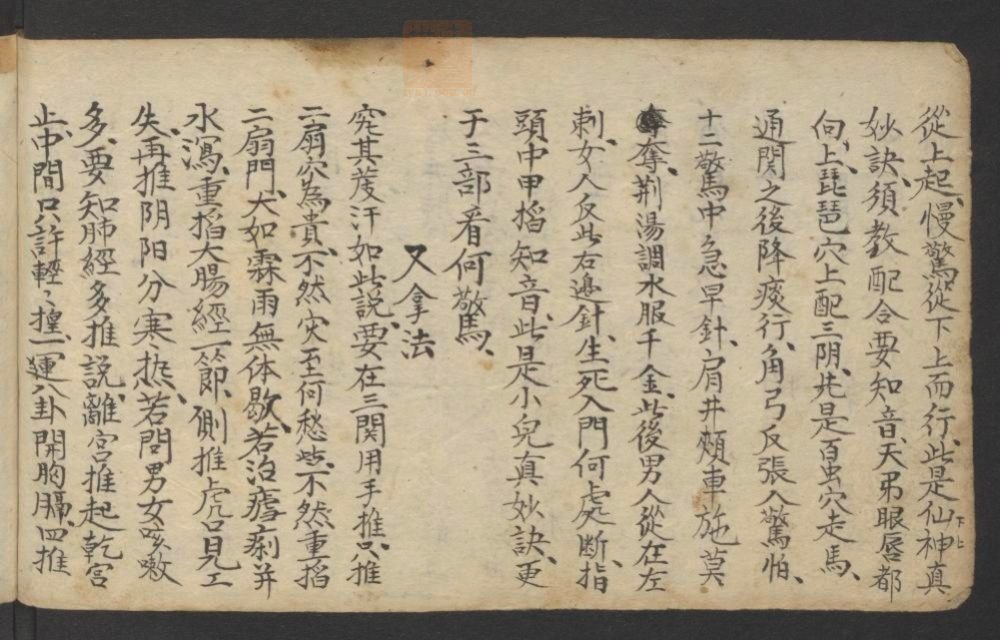 從上起、慢驚從下上而行、此是仙神真下上
妙訣、須教配合要知音、天吊眼唇都
向上、琵琶穴上配三阴、此是百虫穴走馬、
通関之後降痰行、角弓反張人驚怕、
十二驚中急早針、肩井頰車施莫
奪、荆湯調水服千金、此後男人從在左
刺、女人反此右邊針、生死入門何處断、指
頭中甲掐知音、此是小兒真妙訣、更
于三部看何驚、
又拿法
究其茂汗如此説、要在三関用手推、只推
二扇穴為貴、不然灾至何愁些、不然重掐
二扇門、大如霖雨無体歇、若治瘧痢并
水瀉、重掐大腸經一節、側推虎口見工
失、再推阴阳分寒热、若問男女咳嗽
多、要知肺經多推説、離宮推起乾宮
止、中間只許輕々撞、一運八卦開胸膈、四推